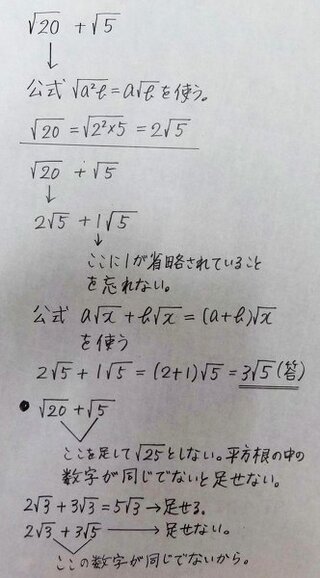 √20 + √5
↓
公式 √a²b = a√b を使う。
√20 = √2²×5 = 2√5
√20 + √5
↓
2√5 + 1√5
↓
ここに1が省略されていること
を忘れない。
公式 a√x + b√x = (a+b)√x
を使う
2√5 + 1√5 = (2+1)√5 = 3√5 (答)
● √20 + √5
ここを足して√25としない。平方根の中の
数字が同じでないと足せない。
2√3 + 3√3 = 5√3 → 足せる。
2√3 + 3√5 → 足せない。
ここの数字が同じでないから。